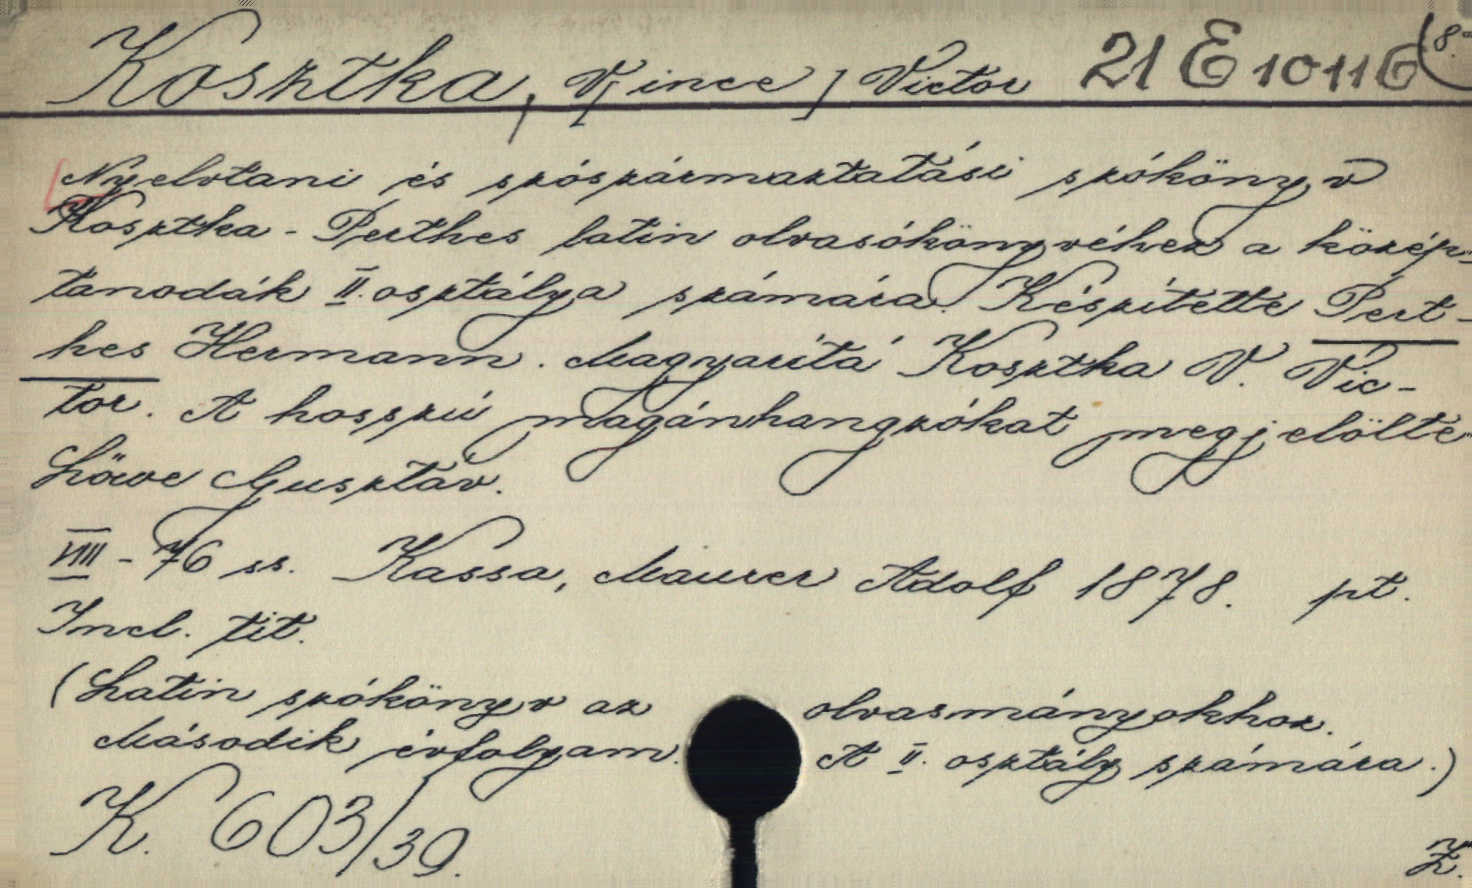 Kosztka, V[ince] Victor 21 E 10116 (8.-
Nyelvtani és szószármaztatási szókönyv
Kosztka - Perthes latin olvasókönyvéhez a közép-
tanodák II. osztálya számára. Készítette Pert-
hes Hermann. Magyarítá Kosztka V. Vic-
tor. A hosszú magánhangzókat megjelölte
Löwe Gusztáv.
VIII - 76 ss. Kassa, Maurer Adolf 1878. pt.
Incl. tit.
(Latin szókönyv az olvasmányokhoz.
Második évfolyam. A II. osztály számára.)
K. 603/39.
Z.